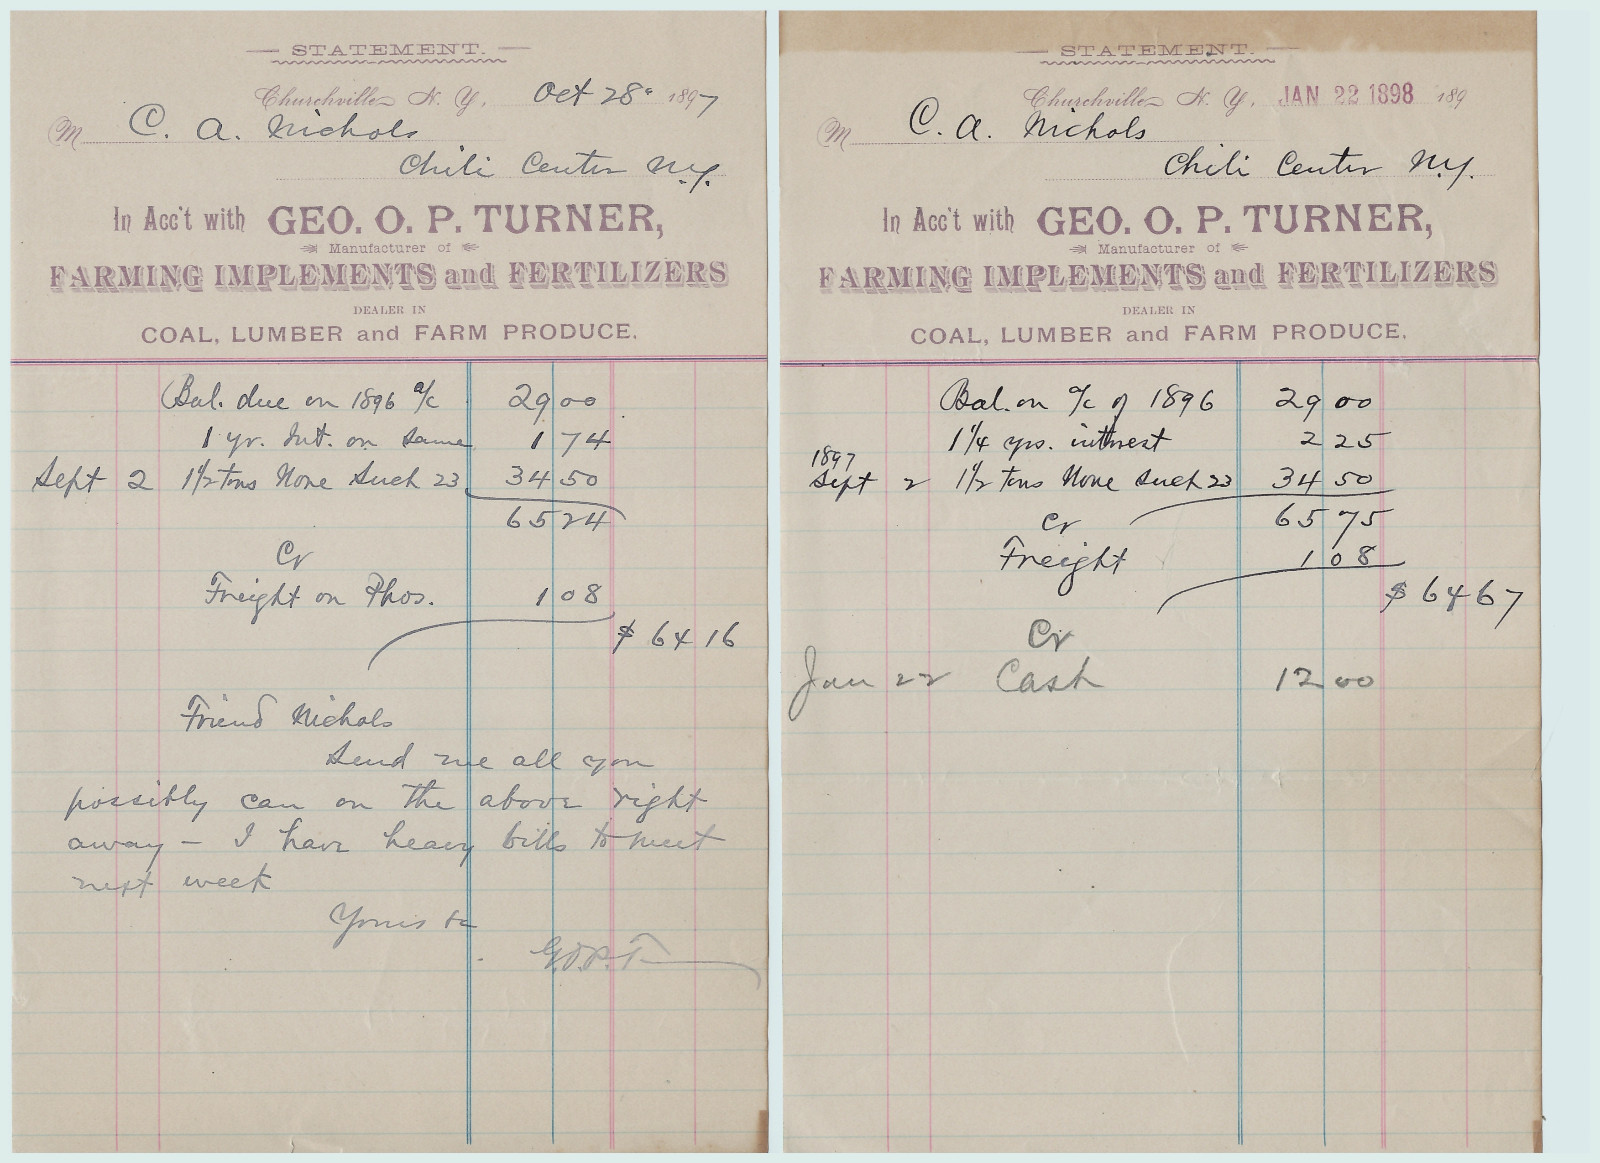 STATEMENT.
Churchville N. Y., Oct 28" 1897
M C. A. Nichols
Chili Center N.Y.
In Acc't with GEO. O. P. TURNER,
Manufacturer of
FARMING IMPLEMENTS and FERTILIZERS
DEALER IN
COAL, LUMBER and FARM PRODUCE.
Bal. due on 1896 a/c 29 00
1 yr. Int. on same 1 74
Sept 2 1 1/2 tons None Such 23 34 50
65 24
Cr
Freight on Phos. 1 08
$ 64 16
Friend Nichols
Send me all you
possibly can on the above right
away - I have heavy bills to meet
next week
Yours &c
G.O.P.T
STATEMENT.
Churchville N. Y., JAN 22 1898 189
M C. A. Nichols
Chili Center N.Y.
In Acc't with GEO. O. P. TURNER,
Manufacturer of
FARMING IMPLEMENTS and FERTILIZERS
DEALER IN
COAL, LUMBER and FARM PRODUCE.
Bal. on a/c of 1896 29 00
1 1/4 yrs. interest 2 25
1897
Sept 2 1 1/2 tons None Such 23 34 50
Cr 65 75
Freight 1 08
$ 64 67
Cr
Jan 22 Cash 12 00